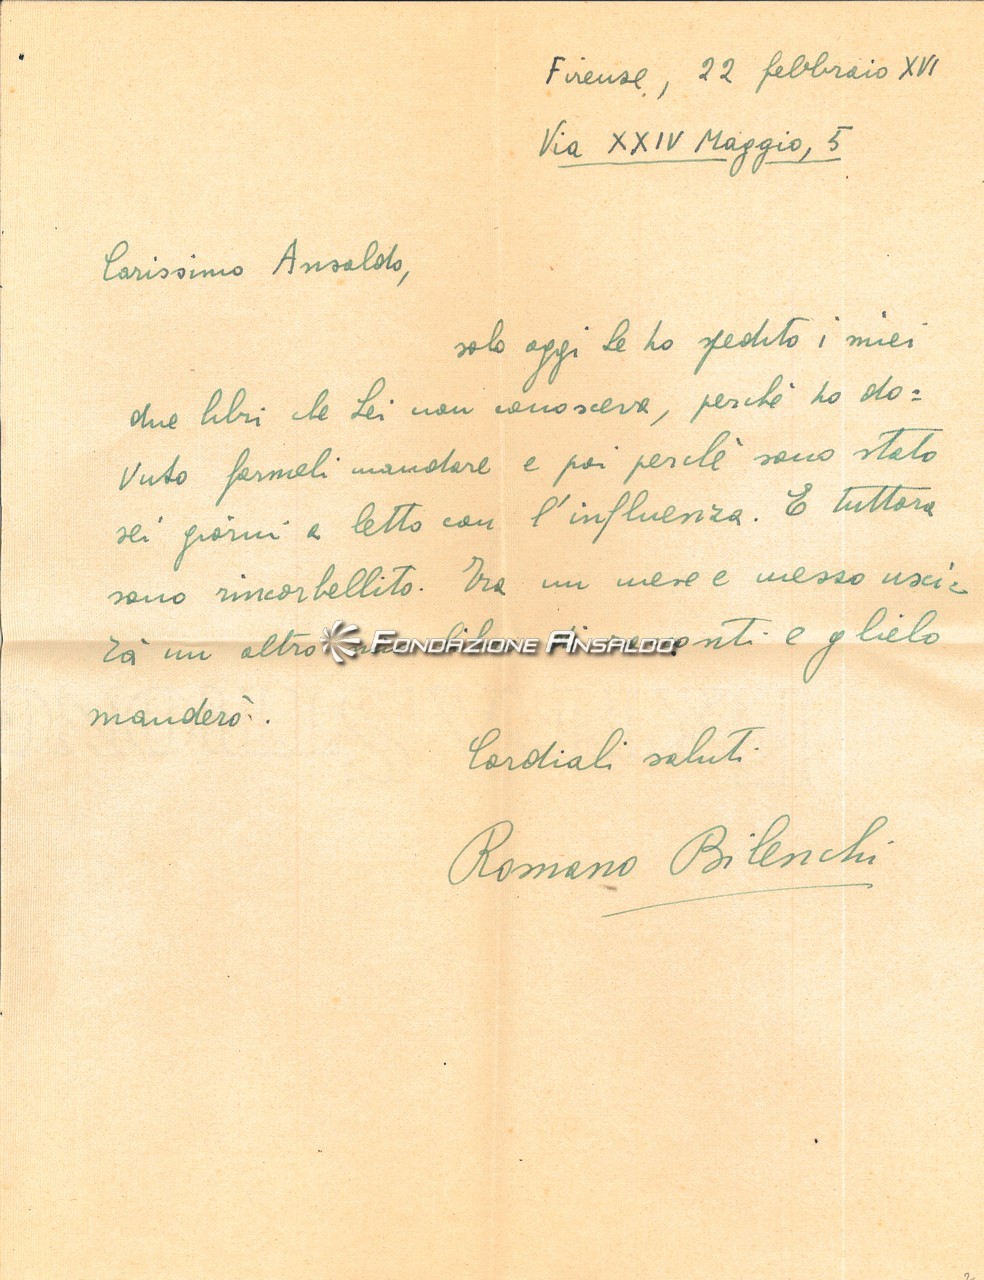 Firenze, 22 febbraio XVI
Via XXIV Maggio, 5
Carissimo Ansaldo,
solo oggi Le ho spedito i miei
due libri che Lei non conosceva, perchè ho do=
vuto farmeli mandare e poi perchè sono stato
sei giorni a letto con l'influenza. E tuttora
sono rincorbellito. Tra un mese e mezzo usci=
rà un altro libro di racconti e glielo
FONDAZIONE ANSALDO
manderò.
Cordiali saluti
Romano Bilenchi